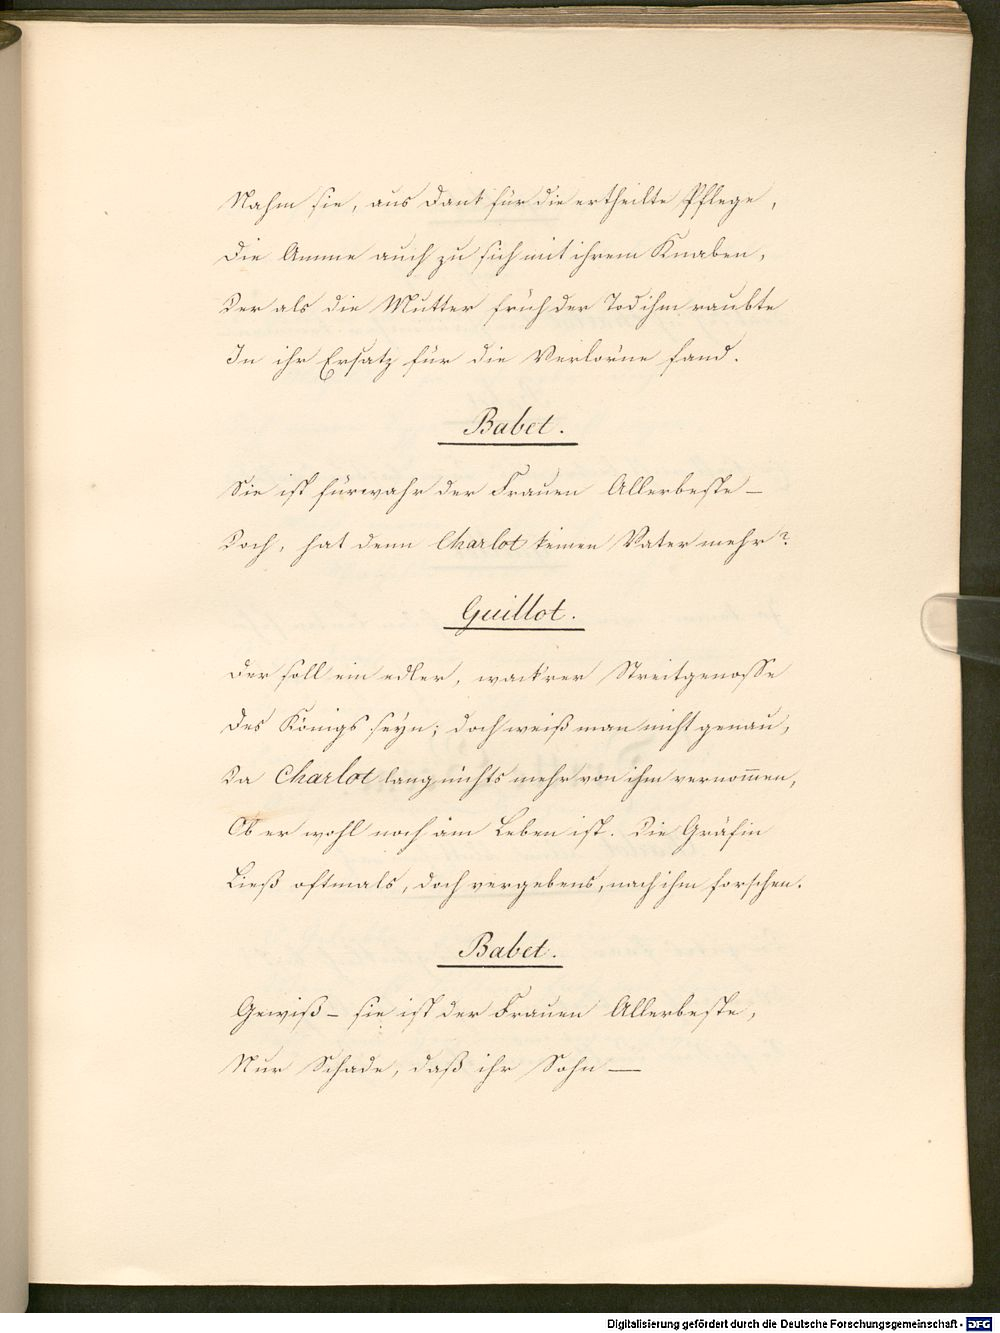 Nahm sie, aus Dank für die ertheilte Pflege,
Die Amme auch zu sich mit ihrem Knaben,
Der als die Mutter früh der Tod ihm raubte
In ihr Ersatz für die Verlorne fand.
Babet.
Sie ist fürwahr der Frauen Allerbeste –
Doch, hat denn Charlot keinen Vater mehr?
Guillot.
Der soll ein edler, wackrer Streitgenosse
Des Königs seyn; doch weiß man nicht genau,
Da Charlot lang nichts mehr von ihm vernom̅en,
Ob er wohl noch am Leben ist. Die Gräfin
Ließ oftmals, doch vergebens, nach ihm forschen.
Babet.
Gewiß – sie ist der Frauen Allerbeste,
Nur Schade, daß ihr Sohn —
Digitalisierung gefördert durch die Deutsche Forschungsgemeinschaft - DFG